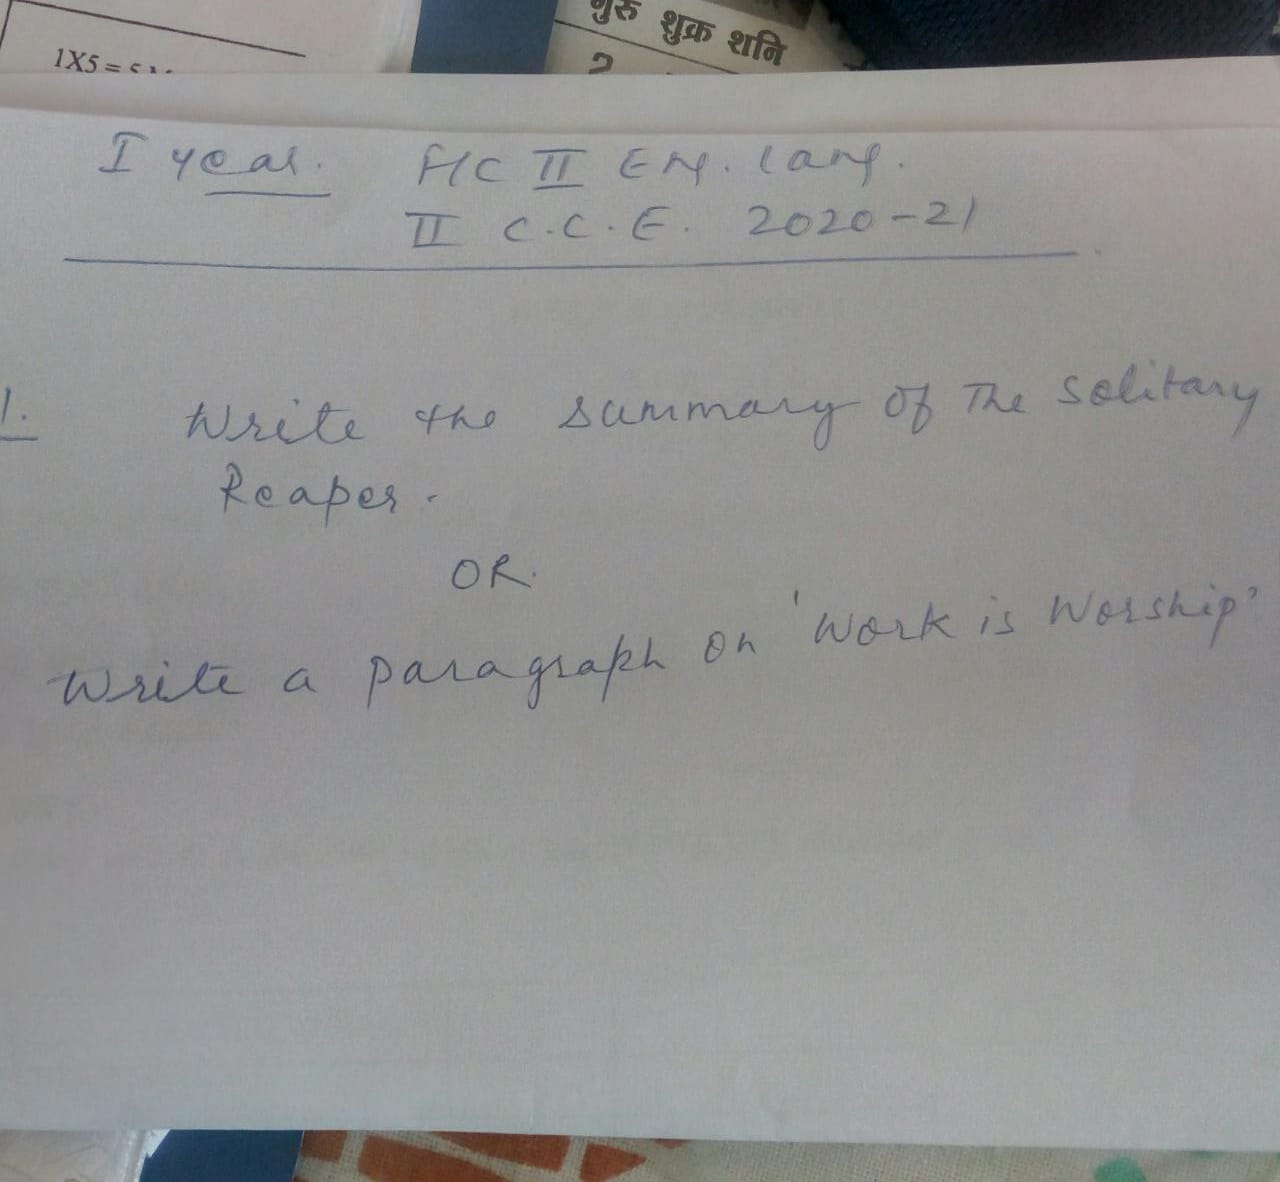 1X5=5
गुरु शुक्र शनि
I year. F/C II Eng. lang.
II C.C.E. 2020-21
1. Write the summary of The Solitary
Reaper.
OR.
Write a paragraph on 'Work is Worship'